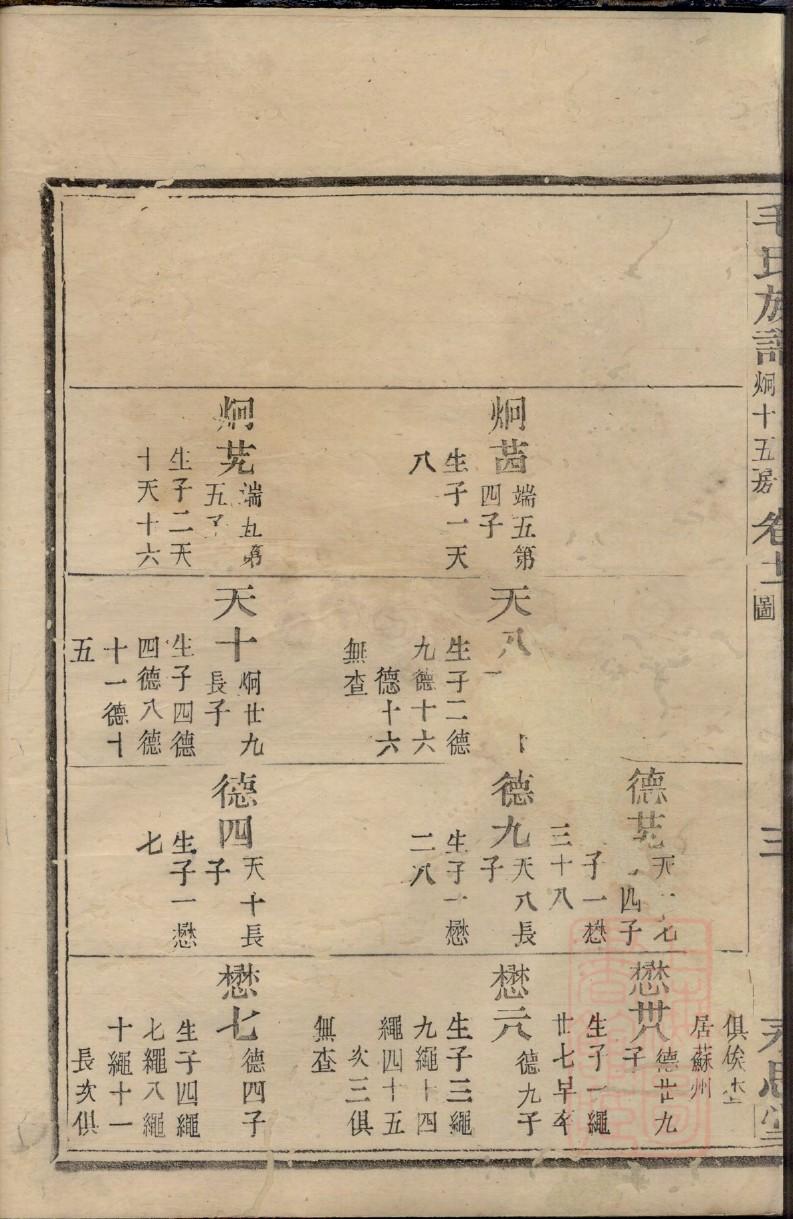 毛氏族譜 烱十五房 卷十 圖 三 永思堂
烱茜 端五第四子
生子一天
八
烱芫 端五第五子
生子二天
十天十六
天八
生子二德
九德十六
德十六
無查
天十 烱廿九長子
生子四德
四德八德
十一德十
五
德芫 四子
子一懋
三十八
德九 天八長子
生子一懋
二八
德四 天十長子
生子一懋
七
俱俟
居蘇州
懋 德廿九子
生子一繩
廿七早卒
懋元 德九子
生子三繩
九繩十四
繩四十五
次三俱
無查
懋七 德四子
生子四繩
七繩八繩
十繩十一
長次俱